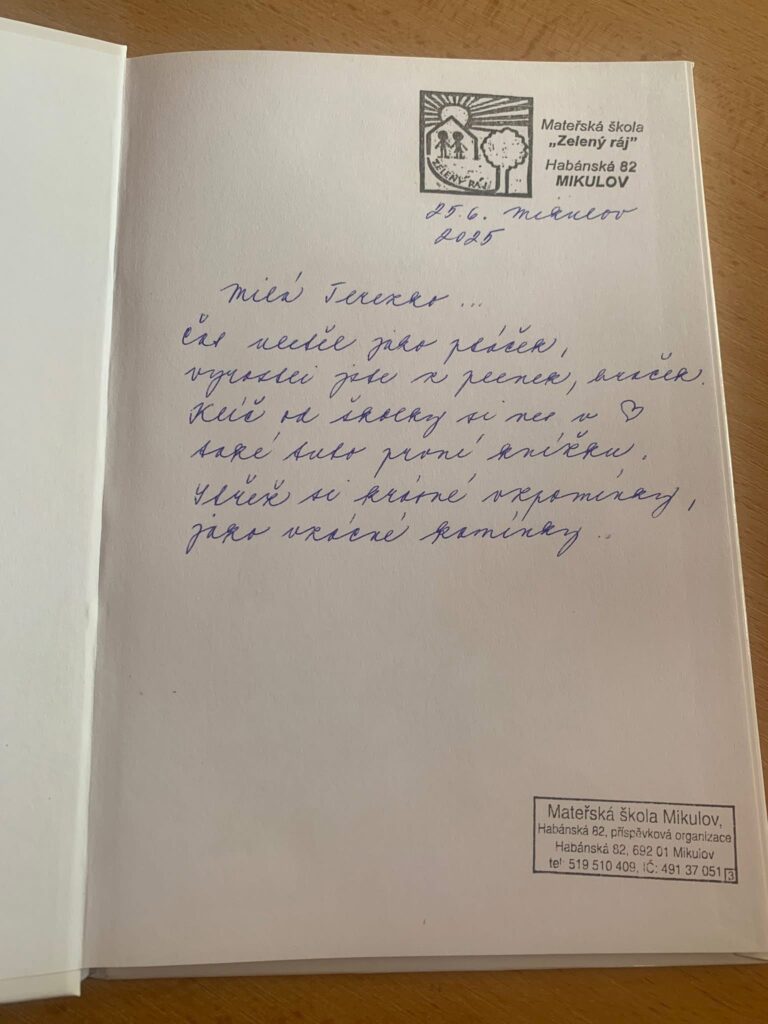 ZELENÝ RÁJ
Mateřská škola
„Zelený ráj”
Habánská 82
MIKULOV
25.6. Mikulov
2025
Milá Terezko ...
Čas utekl jako ptáček,
vyrostli jste z plenek, hraček.
Klíč od školky si nes v ♡
také tuto první knížku.
Střež si krásné vzpomínky,
jako vzácné kamínky ..
Mateřská škola Mikulov,
Habánská 82, příspěvková organizace
Habánská 82, 692 01 Mikulov
tel: 519 510 409, IČ: 491 37 051 3